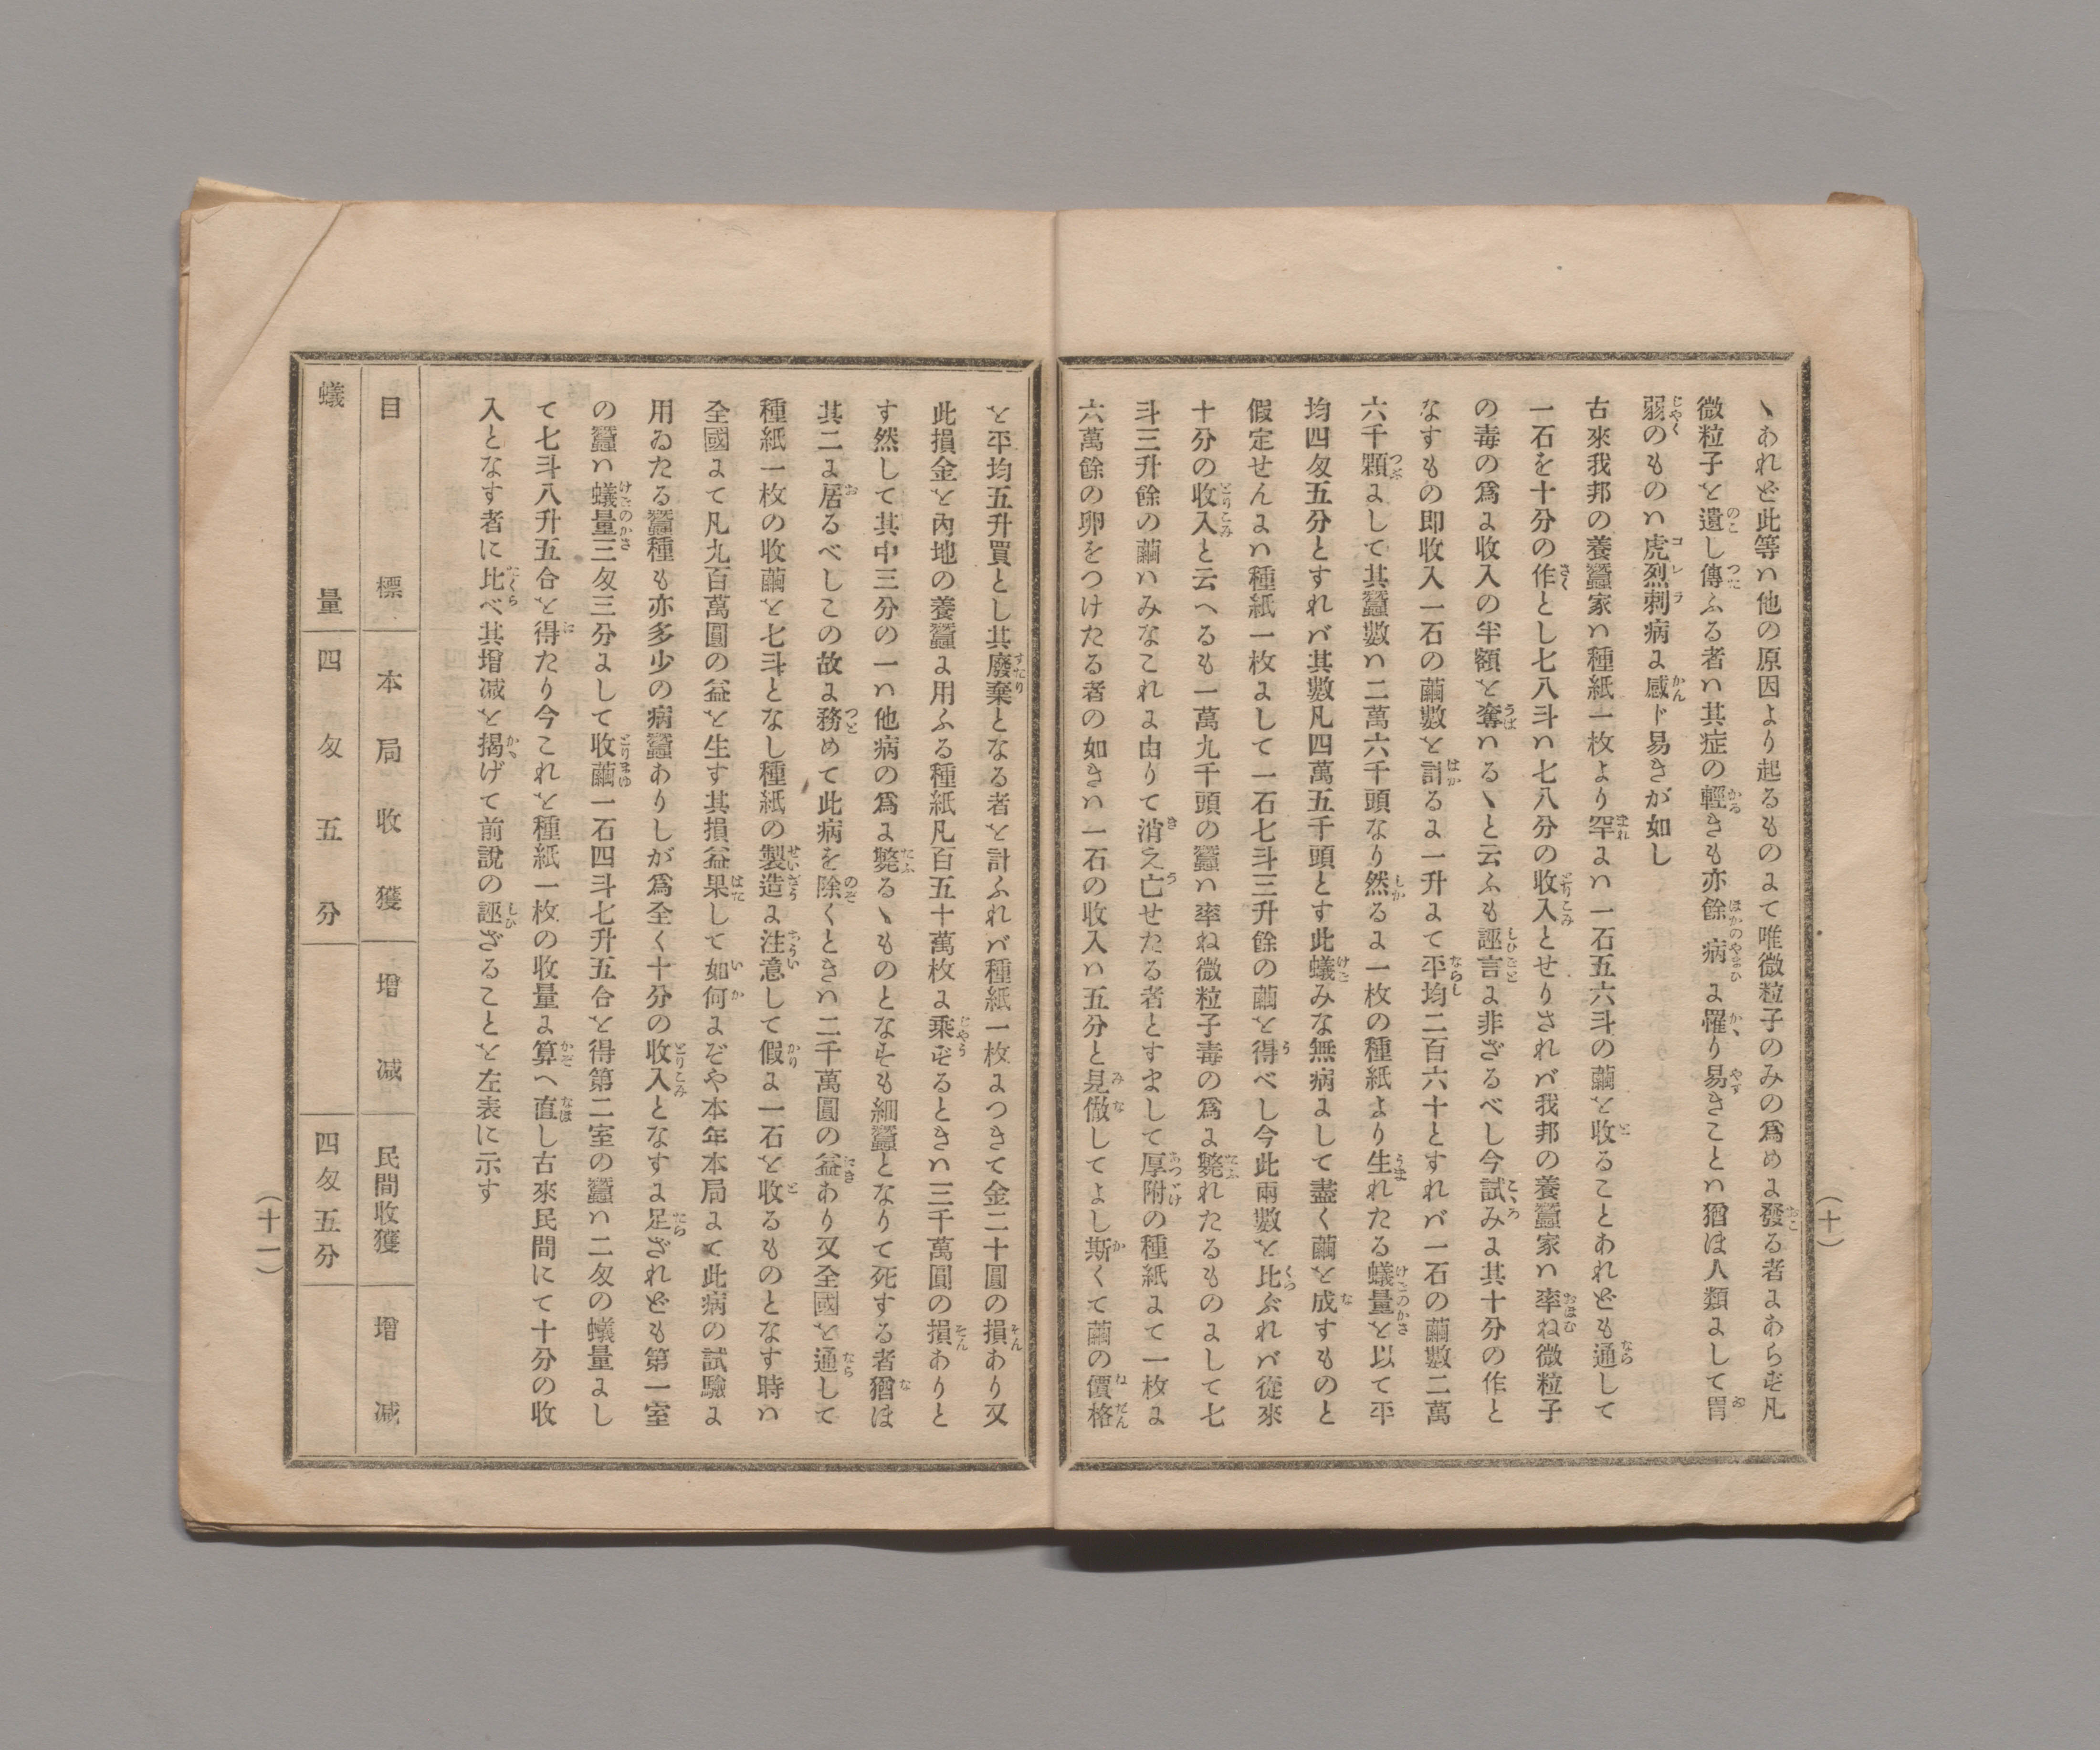 （十）
ヽあれど此等ハ他の原因より起るものにて唯微粒子のみの爲めに發る者にあらず凡
微粒子を遺し傳ふる者ハ其症の輕きも亦餘病に罹り易きことハ猶ほ人類にして胃
弱のものハ虎烈剌病に感ド易きが如し
古來我邦の養蠶家ハ種紙一枚より罕にハ一石五六斗の繭を收ることあれども通して
一石を十分の作とし七八斗ハ七八分の收入とせりされバ我邦の養蠶家ハ率ね微粒子
の毒の爲に收入の半額を奪ハるヽと云ふも誣言に非ざるべし今試みに其十分の作と
なすもの即收入一石の繭數を計るに一升にて平均二百六十とすれバ一石の繭數二萬
六千顆にして其蠶數ハ二萬六千頭なり然るに一枚の種紙より生れたる蟻量を以て平
均四匁五分とすれバ其數凡四萬五千頭とす此蟻みな無病にして盡く繭を成すものと
假定せんにハ種紙一枚にして一石七斗三升餘の繭を得べし今此兩數を比ぶれバ從來
十分の收入と云へるも一萬九千頭の蠶ハ率ね微粒子毒の爲に斃れたるものにして七
斗三升餘の繭ハみなこれに由りて消え亡せたる者とすまして厚附の種紙にて一枚に
六萬餘の卵をつけたる者の如きハ一石の收入ハ五分と見做してよし斯くて繭の價格
を平均五升買とし其廢棄となる者を計ふれバ種紙一枚につきて金二十圓の損あり又
此損金を內地の養蠶に用ふる種紙凡百五十萬枚に乘ずるときハ三千萬圓の損ありと
す然して其中三分の一ハ他病の爲に斃るヽものとなすも細蠶となりて死する者猶ほ
其二に居るべしこの故に務めて此病を除くときハ二千萬圓の益あり又全國を通して
種紙一枚の收繭を七斗となし種紙の製造に注意して假に一石を收るものとなす時ハ
全國にて凡九百萬圓の益を生す其損益果して如何にぞや本年本局にて此病の試驗に
用ゐたる蠶種も亦多少の病蠶ありしが爲全く十分の收入となすに足ざれども第一室
の蠶ハ蟻量三匁三分にして收繭一石四斗七升五合を得第二室の蠶ハ二匁の蟻量にし
て七斗八升五合を得たり今これを種紙一枚の收量に算へ直し古來民間にて十分の收
入となす者に比べ其增减を揭げて前說の誣ざることを左表に示す
目標 本局收獲 增减 民間收獲 增减
蟻量 四匁五分 四匁五分
（十一）